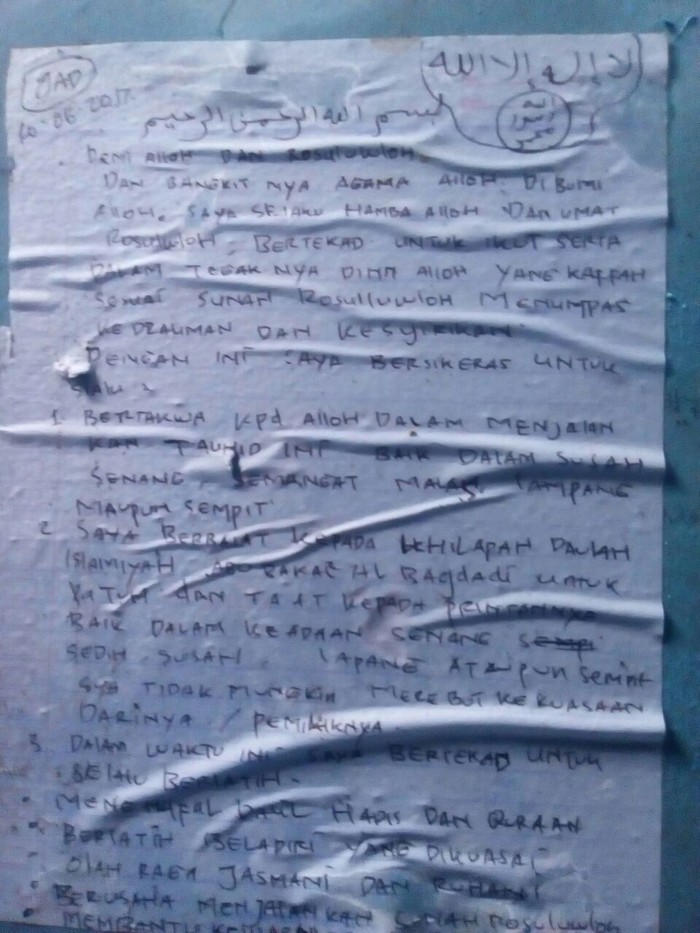 JAD
20-06-2017
لا إله إلا الله
الله رسول محمد
بسم الله الرحمن الرحيم
DEMI Alloh DAN ROSULULLOH
DAN BANGKIT NYA AGAMA Alloh DIBUMI
Alloh. SAYA SELAKU HAMBA Alloh DAN UMAT
ROSULULLOH. BERTEKAD UNTUK IKUT SERTA
DALAM TEGAK NYA DINN Alloh YANG KAFFAH
SESUAI SUNAH ROSULLULLOH MENUMPAS
KEDZALIMAN DAN KESYIRIKAN
DENGAN INI SAYA BERSIKERAS UNTUK
SLALU :
1. BERTAKWA KPd Alloh DALAM MENJALAN
KAN TAUHID INI BAIK DALAM SUSAH
SENANG, SEMANGAT MALAS, LAMPANG
MAUPUN SEMPIT
2 SAYA BERBAIAT KEPADA KHILAPAH DAULAH
ISLAMIYAH ABU BAKAR AL BAGDADI UNTUK
DAN TAAT KEPADA
BAIK DALAM KEADAAN SENANG
SEDIH SUSAH. LAPANG ATAUPUN SEMPIT
SYA TIDAK MUNGKIN MEREBUT KEKUASAAN
DARINYA / PEMILIKNYA.
3 DALAM WAKTU INI SAYA BERTEKAD UNTUK
SELALU BERLATIH -
MENGHAFAL DALIL HADIS DAN QURAAN
BERLATIH BELADIRI YANG DIKUASAI
OLAH RAGA JASMANI DAN RUHANI
BERUSAHA MENJALANKAN SUNAH ROSULULLOH